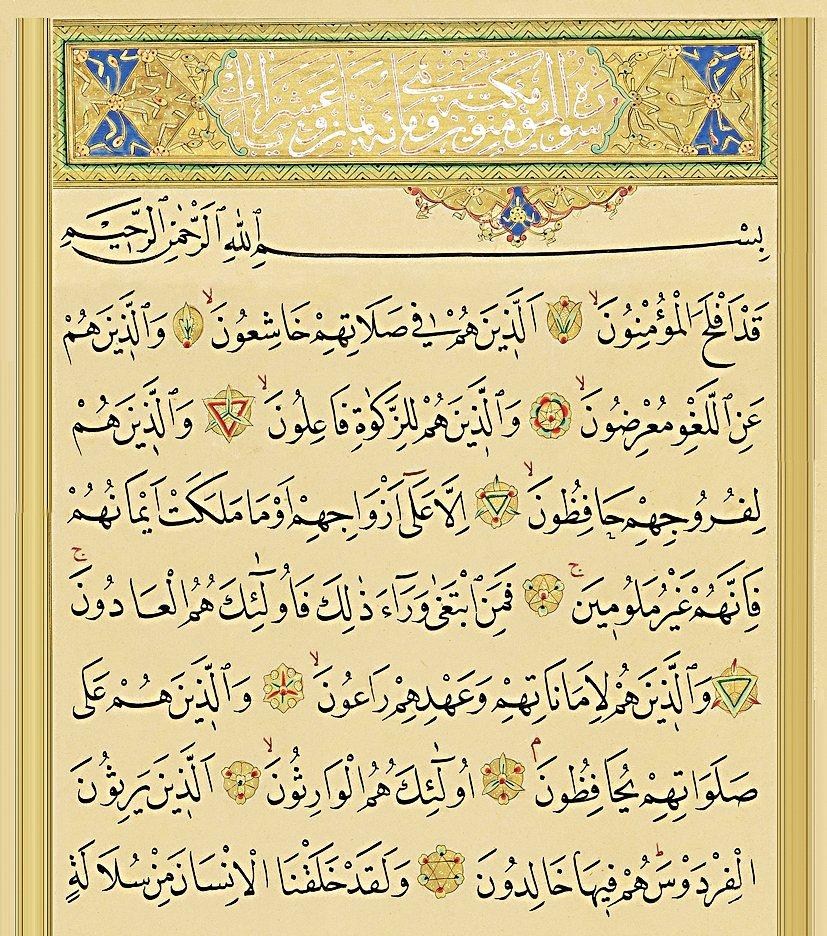 سورة المؤمنون مكية وهي مائة وثماني عشرة آيات
بِسْمِ اللّٰهِ الرَّحْمٰنِ الرَّحِيمِ
قَدْ اَفْلَحَ الْمُؤْمِنُونَ ۙ اَلَّذِينَ هُمْ فِي صَلَاتِهِمْ خَاشِعُونَ ۙ وَالَّذِينَ هُمْ
عَنِ اللَّغْوِ مُعْرِضُونَ ۙ وَالَّذِينَ هُمْ لِلزَّكٰوةِ فَاعِلُونَ ۙ وَالَّذِينَ هُمْ
لِفُرُوجِهِمْ حَافِظُونَ ۙ اِلَّا عَلٰٓى اَزْوَاجِهِمْ اَوْ مَا مَلَكَتْ اَيْمَانُهُمْ
فَاِنَّهُمْ غَيْرُ مَلُومِينَ ۚ فَمَنِ ابْتَغٰى وَرَٓاءَ ذٰلِكَ فَاُولٰٓئِكَ هُمُ الْعَادُونَ ۚ
وَالَّذِينَ هُمْ لِاَمَانَاتِهِمْ وَعَهْدِهِمْ رَاعُونَ ۙ وَالَّذِينَ هُمْ عَلٰى
صَلَوَاتِهِمْ يُحَافِظُونَ ۘ اُولٰٓئِكَ هُمُ الْوَارِثُونَ ۙ اَلَّذِينَ يَرِثُونَ
الْفِرْدَوْسَ ط هُمْ فِيهَا خَالِدُونَ وَلَقَدْ خَلَقْنَا الْاِنْسَانَ مِنْ سُلَالَةٍ